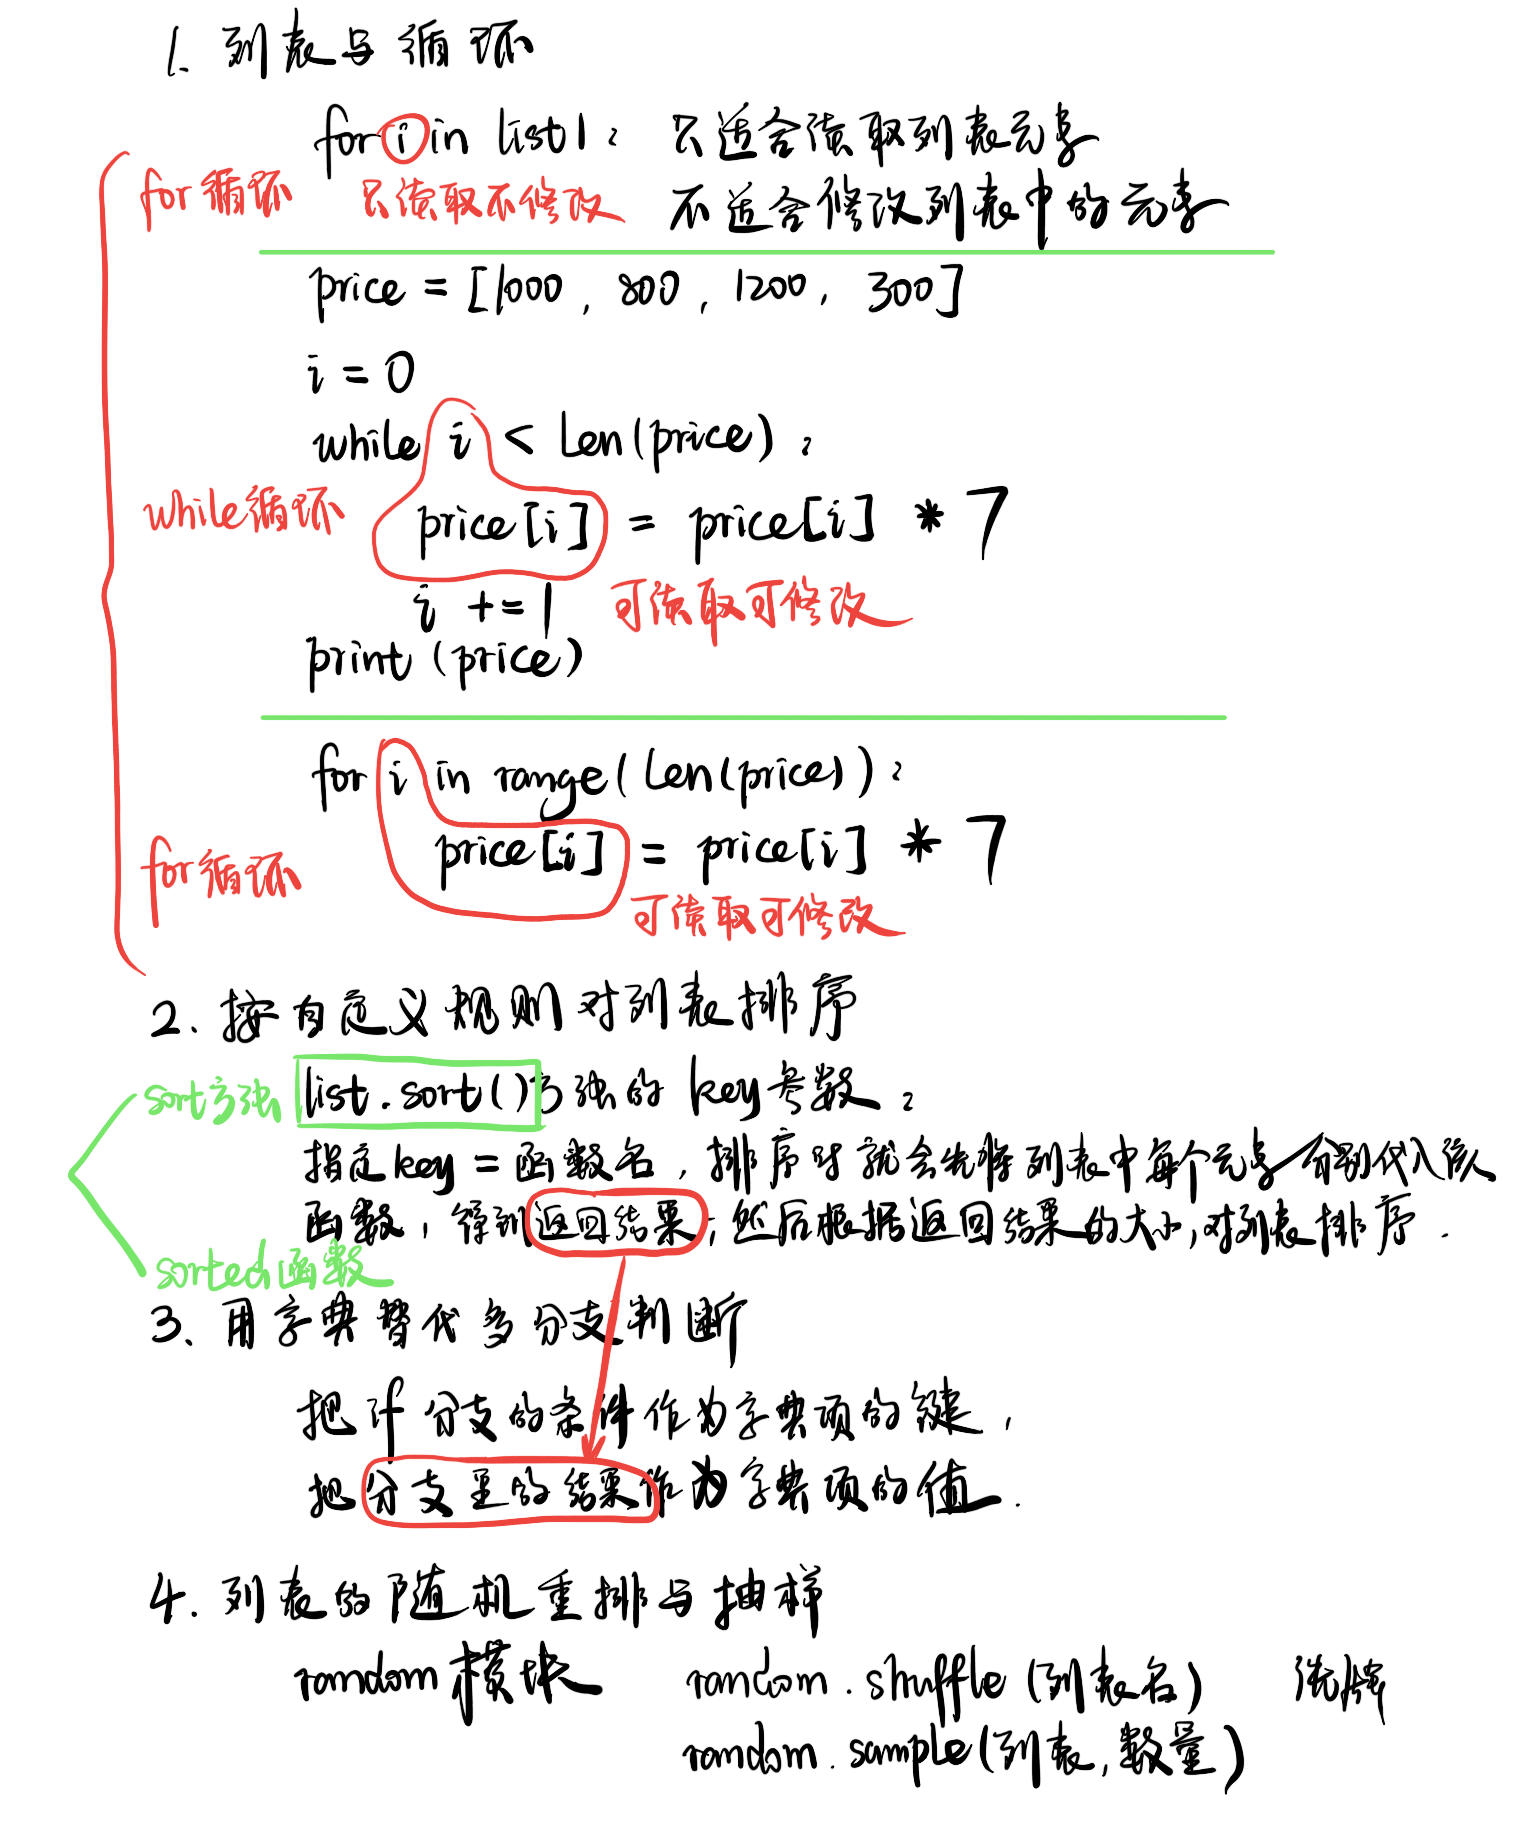 1. 列表与循环
for i in list1: 只适合读取列表元素
for循环 只读取不修改 不适合修改列表中的元素
price = [1000, 800, 1200, 300]
i = 0
while i < len(price):
while循环 price[i] = price[i] * 7
i += 1 可读取可修改
print(price)
for i in range(len(price)):
price[i] = price[i] * 7
for循环 可读取可修改
2. 按自定义规则对列表排序
sort方法 list.sort()方法的key参数。
指定key=函数名,排序时就会先将列表中每个元素分别代入该
函数,得到返回结果,然后根据返回结果的大小,对列表排序.
sorted函数
3、用字典替代多分支判断
把if分支的条件作为字典项的键,
把分支里的结果作为字典项的值.
4. 列表的随机重排与抽样
random模块 random.shuffle(列表名) 洗牌
random.sample(列表,数量)